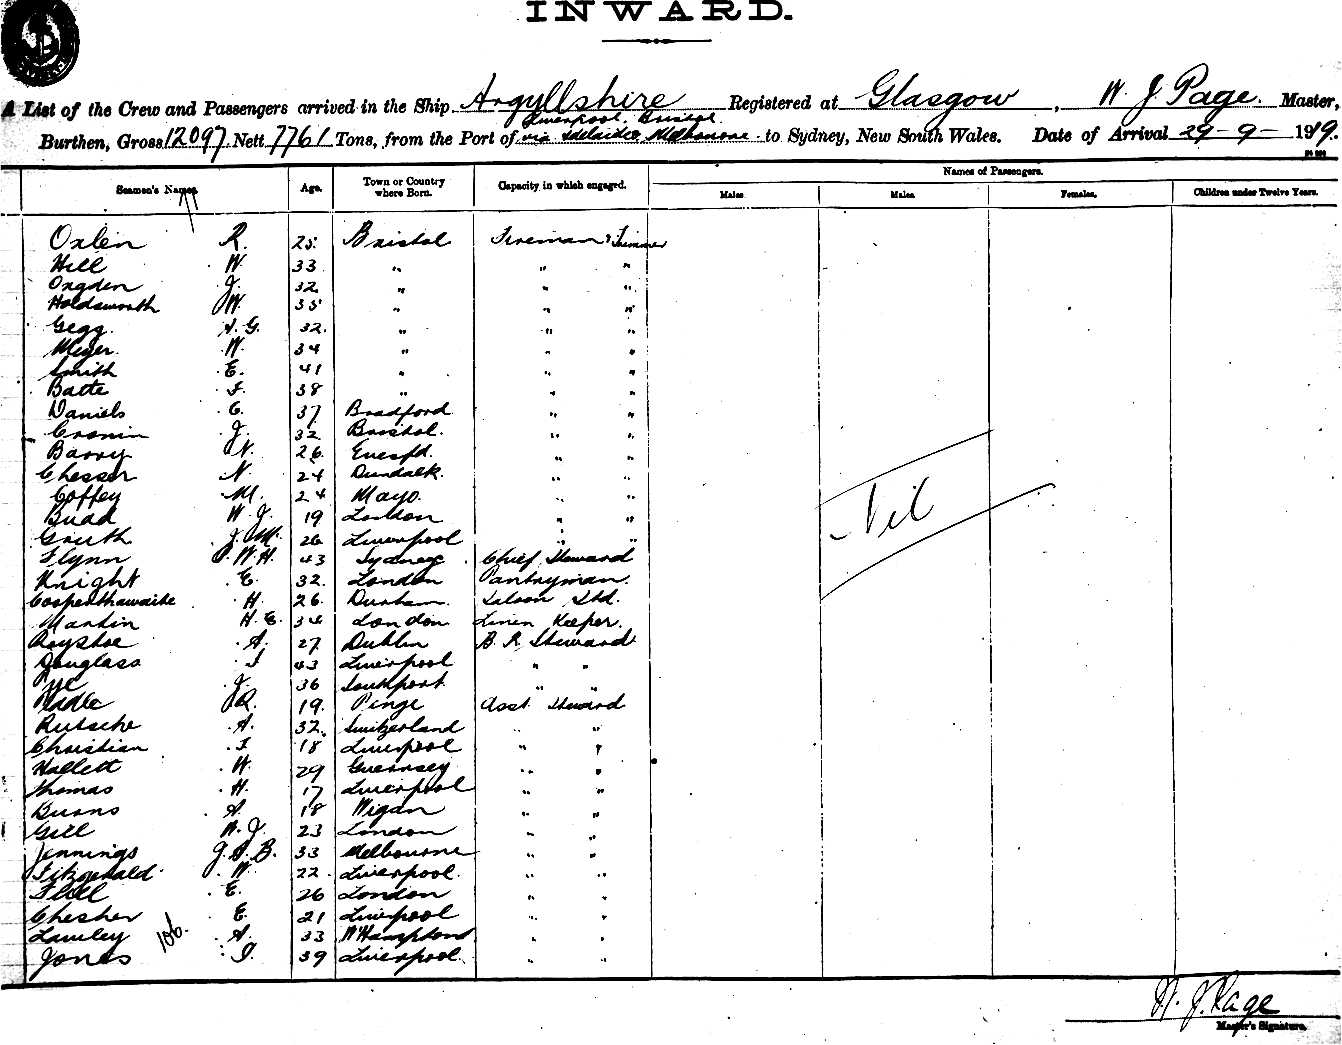 INWARD.
A List of the Crew and Passengers arrived in the Ship Argyllshire Registered at Glasgow, W. J. Page. Master,
Liverpool, Bristol
Burthen, Gross 12097 Nett 7761 Tons, from the Port of via Adelaide Melbourne to Sydney, New South Wales. Date of Arrival 29-9-1919.
Names of Passengers.
Seamen's Names Age. Town or Country where Born. Capacity in which engaged. Males Males. Females. Children under Twelve Years.
Oxlen R. 25 Bristol Fireman & Trimmer
Hill W. 33 " " "
Ongden J. 32 " " "
Holdsworth W. 35 " " "
Gegg. A. G. 32. " " "
Meyer. W. 34 " " "
Smith E. 41 " " "
Batte F. 38 " " "
Daniels C. 37 Bradford " "
Cronin J. 32 Bristol. " "
Barry N. 26 " "
Chesser N. 24 Dundalk. " "
Coffey M. 24 Mayo. " "
W. J. 19 London " "
J. M. 26 Liverpool " "
Flynn P. W. H. 43 Sydney Chief Steward
Knight E. 32. London Pantryman.
Cooperthawaite H. 26. Durham. Saloon Std.
Mankin H. E. 34 London Linen Keeper.
A. 27 Dublin B. R. Steward
Douglass J 43 Liverpool " "
J. 36 Southport. " "
R. 19. Penge Asst. Steward
Rutsche A. 32. Switzerland " "
Christian J 18 Liverpool " "
Hallett W. 29 Guernsey " "
Thomas H. 17 Liverpool " "
Burns A. 18 Wigan " "
Gill W. J. 23 London " "
Jennings J. A. B. 33 Melbourne " "
Fitzgerald. W. 22. Liverpool. " "
E. 26 London " "
Chesher E. 21 Liverpool " "
Lawley A. 33 W'Hampton " "
Jones J. 39 Liverpool. " "
106.
Nil
W. J. Page
Master's Signature.